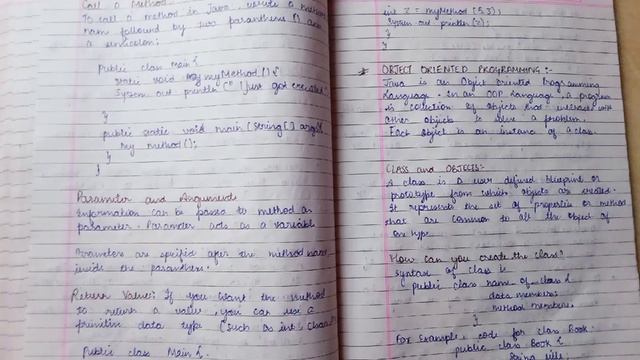 Call a Method:
To call a method in Java, write a method
name followed by two paranthens () and
a semicolon;
Public class Main {
Static void myMethod() {
System out println (" I just got executed
}
public static void main (String [] args) {
My method();
}
}
Parameter and Arguments
Information can be passed to method as
parameter. Parameter acts as a variable
Parameters are specified after the method name,
inside the paranthers.
Return Value: If you want the method
to return a value, you can use a
primitive data type (such as int, char
Public class Main {
int z = myMethod (5,3);
System out println (z);
}
}
* OBJECT ORIENTED PROGRAMMING :-
Java is an Object oriented Programming
Language. In an OOP Language, a program
is collection of objects that interacts with
other objects to solve a problem.
Each object is an instance of a class.
CLASS and OBJECTS:-
A class is a user defined blueprint or
prototype from which objects are created.
It represents the set of properties or method
that are common to all the object of
one type
How can you create the class?
Syntax of class is
public class name of class {
data members
method members.
}
For Example, code for class Book.
public class Book {
String